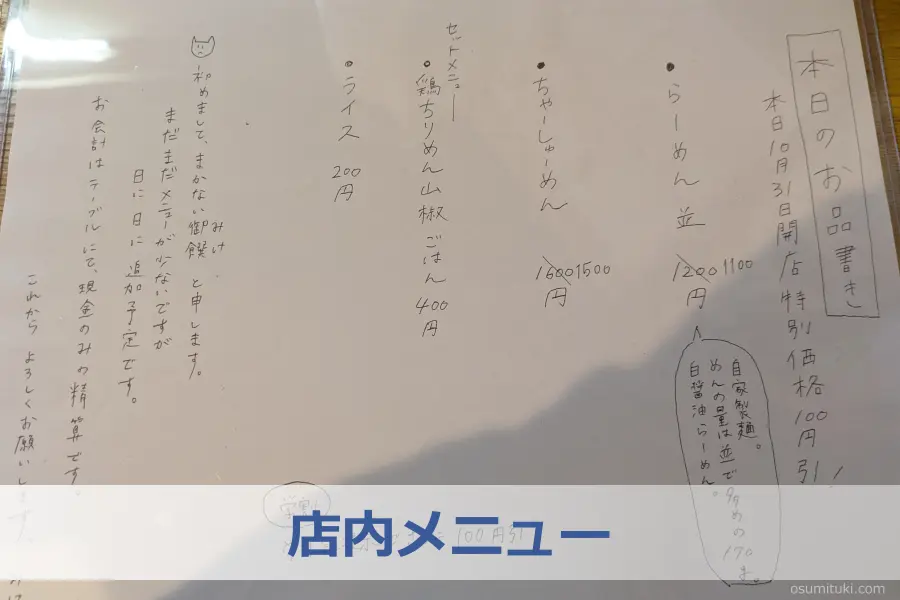 本日のお品書き
本日10月31日開店特別価格100円引!
・らーめん 並 1200 1100円
自家製麺。
めんの量は並で多めの170g。
白醤油らーめん。
・ちゃーしゅーめん 1600 1500円
セットメニュー
・鶏ちりめん山椒ごはん 400円
・ライス 200円
学割
100円引
初めまして、まかない御饌 みけ と申します。
まだまだメニューが少ないですが
日に日に追加予定です。
お会計はテーブルにて、現金のみの精算です。
これから よろしくお願いします
店内メニュー
osumituki.com